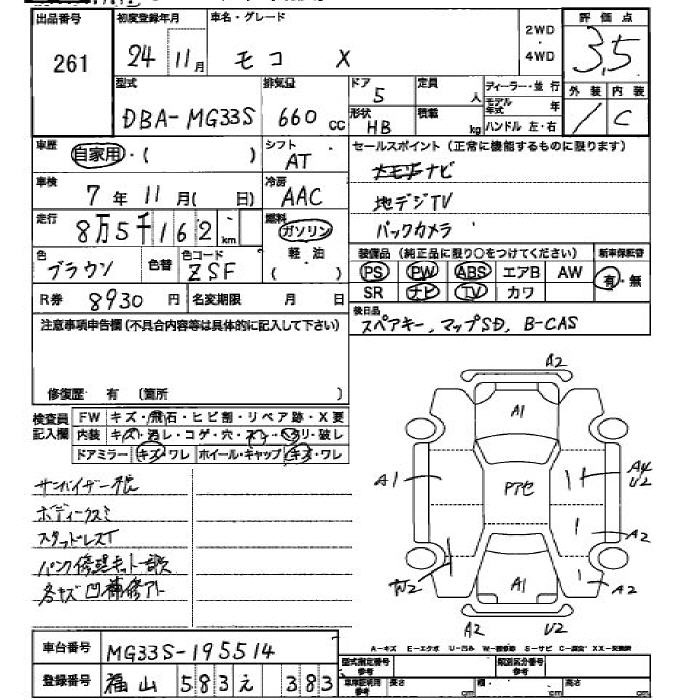 出品番号
261
初度登録年月
24 11月
車名・グレード
モコ X
2WD
・
4WD
評価点
3.5
型式
DBA-MG33S
排気量
660 cc
ドア
5
定員
人
ディーラー・並行
モデル年式 年
形状
HB
積載
kg
ハンドル 左・右
外装
/
内装
C
車歴
自家用・( )
シフト
AT
セールスポイント(正常に機能するものに限ります)
ナビ
地デジTV
バックカメラ
車検
7年11月( 日)
冷房
AAC
走行
8万5千162 km
燃料
ガソリン
軽油
( )
装備品(純正品に限り○をつけてください)
PS PW ABS エアB AW
SR ナビ TV カワ
新車保証書
有・無
色
ブラウン
色替
色コード
ZSF
R券 8930円
名変期限 月 日
後日品
スペアキー, マップSD, B-CAS
注意事項申告欄(不具合内容等は具体的に記入して下さい)
修復歴 有 (箇所 )
検査員記入欄
FW キズ・飛石・ヒビ割・リペア跡・X要
内装 キズ・汚レ・コゲ・穴・ ・ヘタリ・破レ
ドアミラー キズ・ワレ ホイール・キャップ キズ・ワレ
サンバイザー
ボディークスミ
スタッドレスT
パンク修理キット欠
各キズ凹補修アト
A2
A1
A1
Pアセ
A4
U2
A2
W2
A1
A2
A2
U2
A-キズ E-エクボ U-凹み W-補修跡 S-サビ C-腐食 XX-交換跡
車台番号
MG33S-195514
登録番号
福山 583 え 383
型式指定番号
参考
類別区分番号
参考
車庫証明用
参考
長さ cm
幅 cm
高さ cm